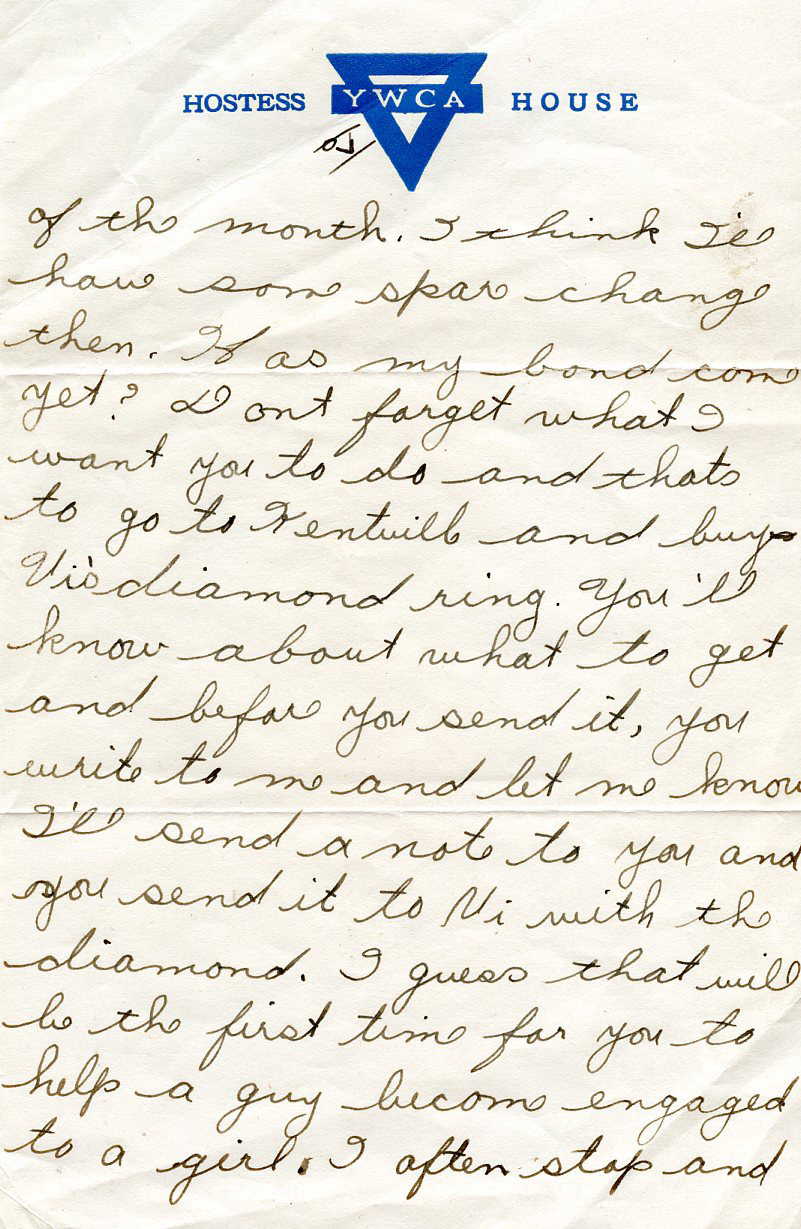 HOSTESS YWCA HOUSE
of the month. I think I'll
have some spare change
then. Has my bond come
yet? Dont forget what I
want you to do and thats
to go to Kentville and buy
Vi's diamond ring. You'll
know about what to get
and before you send it, you
write to me and let me know
I'll send a note to you and
you send it to Vi with the
diamond. I guess that will
be the first time for you to
help a guy become engaged
to a girl. I often stop and